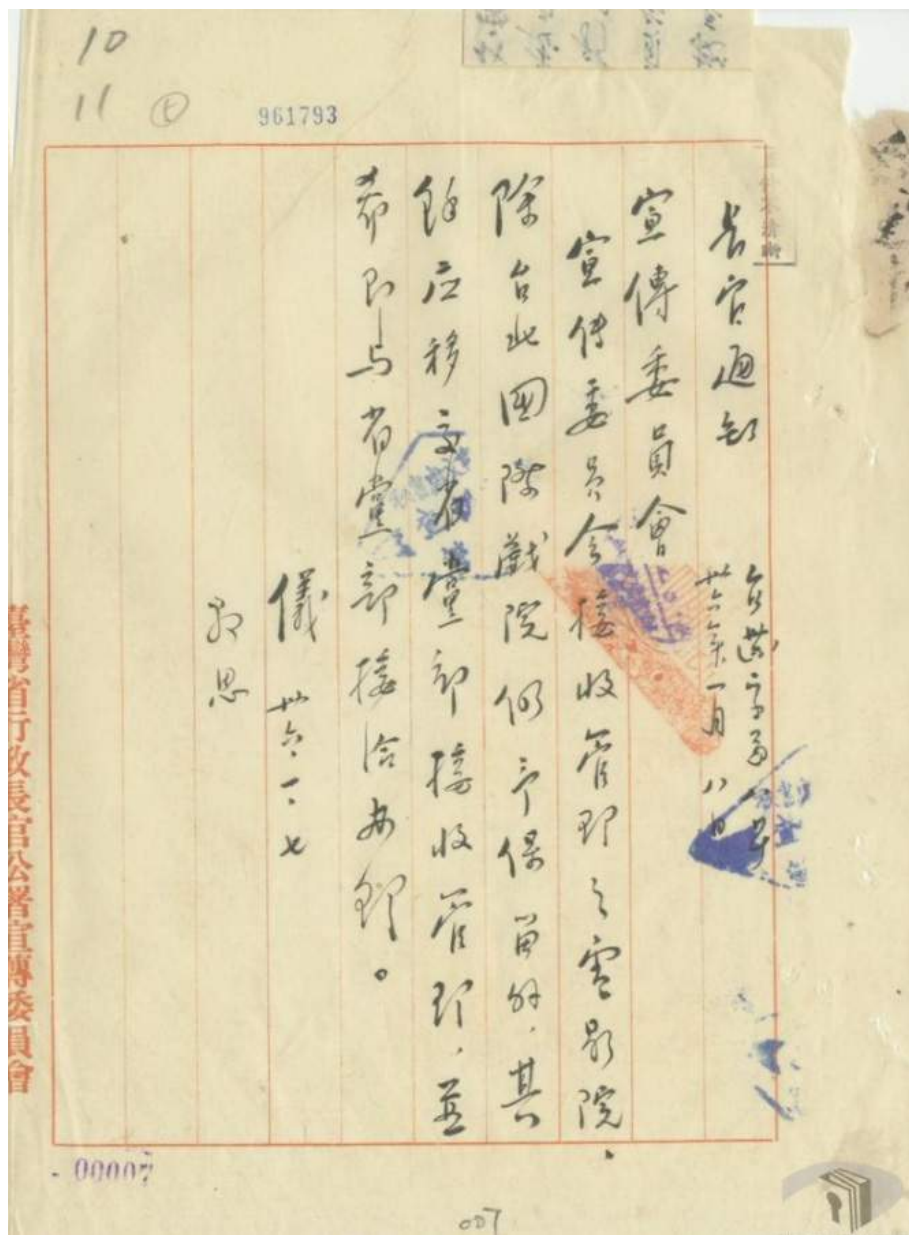 10
11
961793
長官通知
卅六年一月八日
宣傳委員會
宣传委员会接收管理之電影院、
除台北國際戲院仍予保留外，其
餘应移交省黨部接收管理，並
希即与省黨部接洽办理。
儀 卅六、一、七
臺灣省行政長官公署宣傳委員會
00007
007